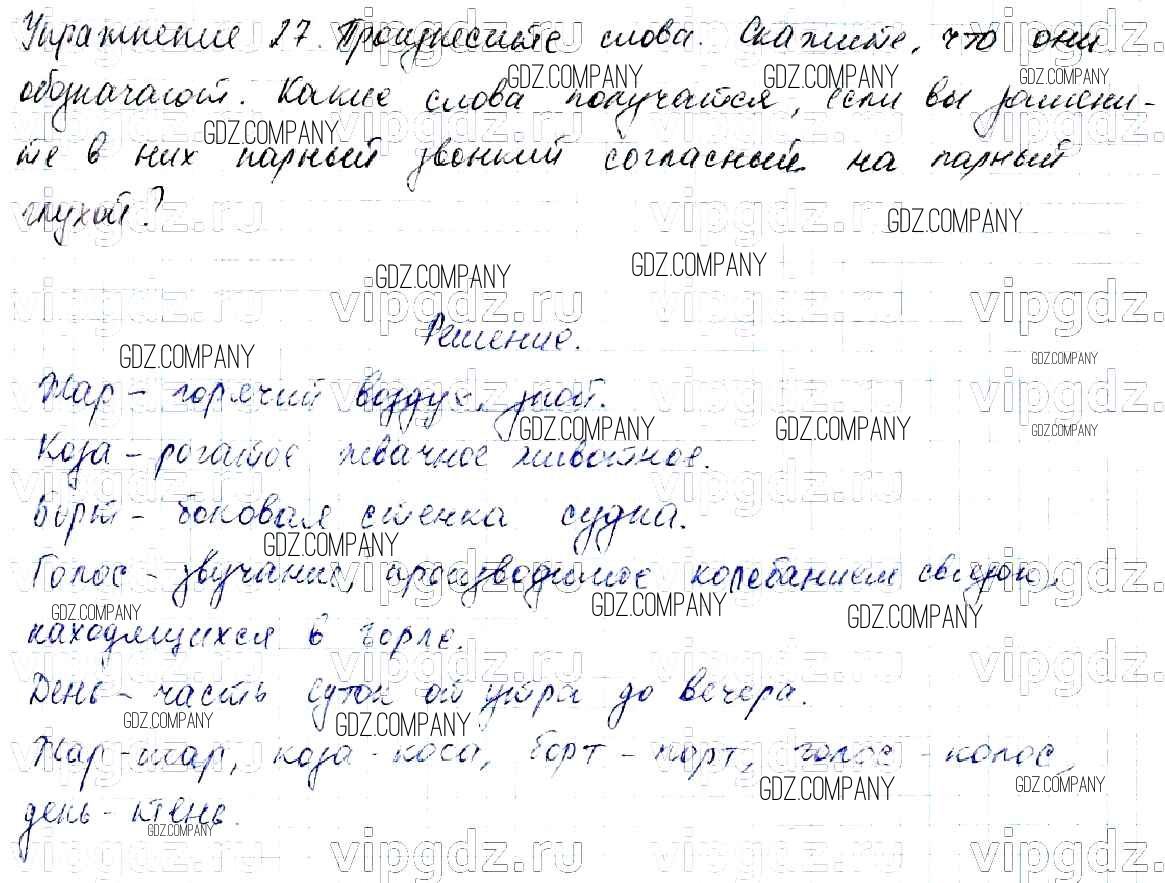 Упражнение 27. Произнесите слова. Скажите, что они
обозначают. Какие слова получатся, если вы замени-
те в них парный звонкий согласный на парный
глухой?
Решение.
Жар – горячий воздух, зной.
Коза – рогатое жвачное животное.
Борт – боковая стенка судна.
Голос – звучание, производимое колебанием связок,
находящихся в горле.
День – часть суток от утра до вечера.
Жар – шар, коза – коса, борт – порт, голос – колос,
день – тень.
GDZ.COMPANY
vipgdz.ru